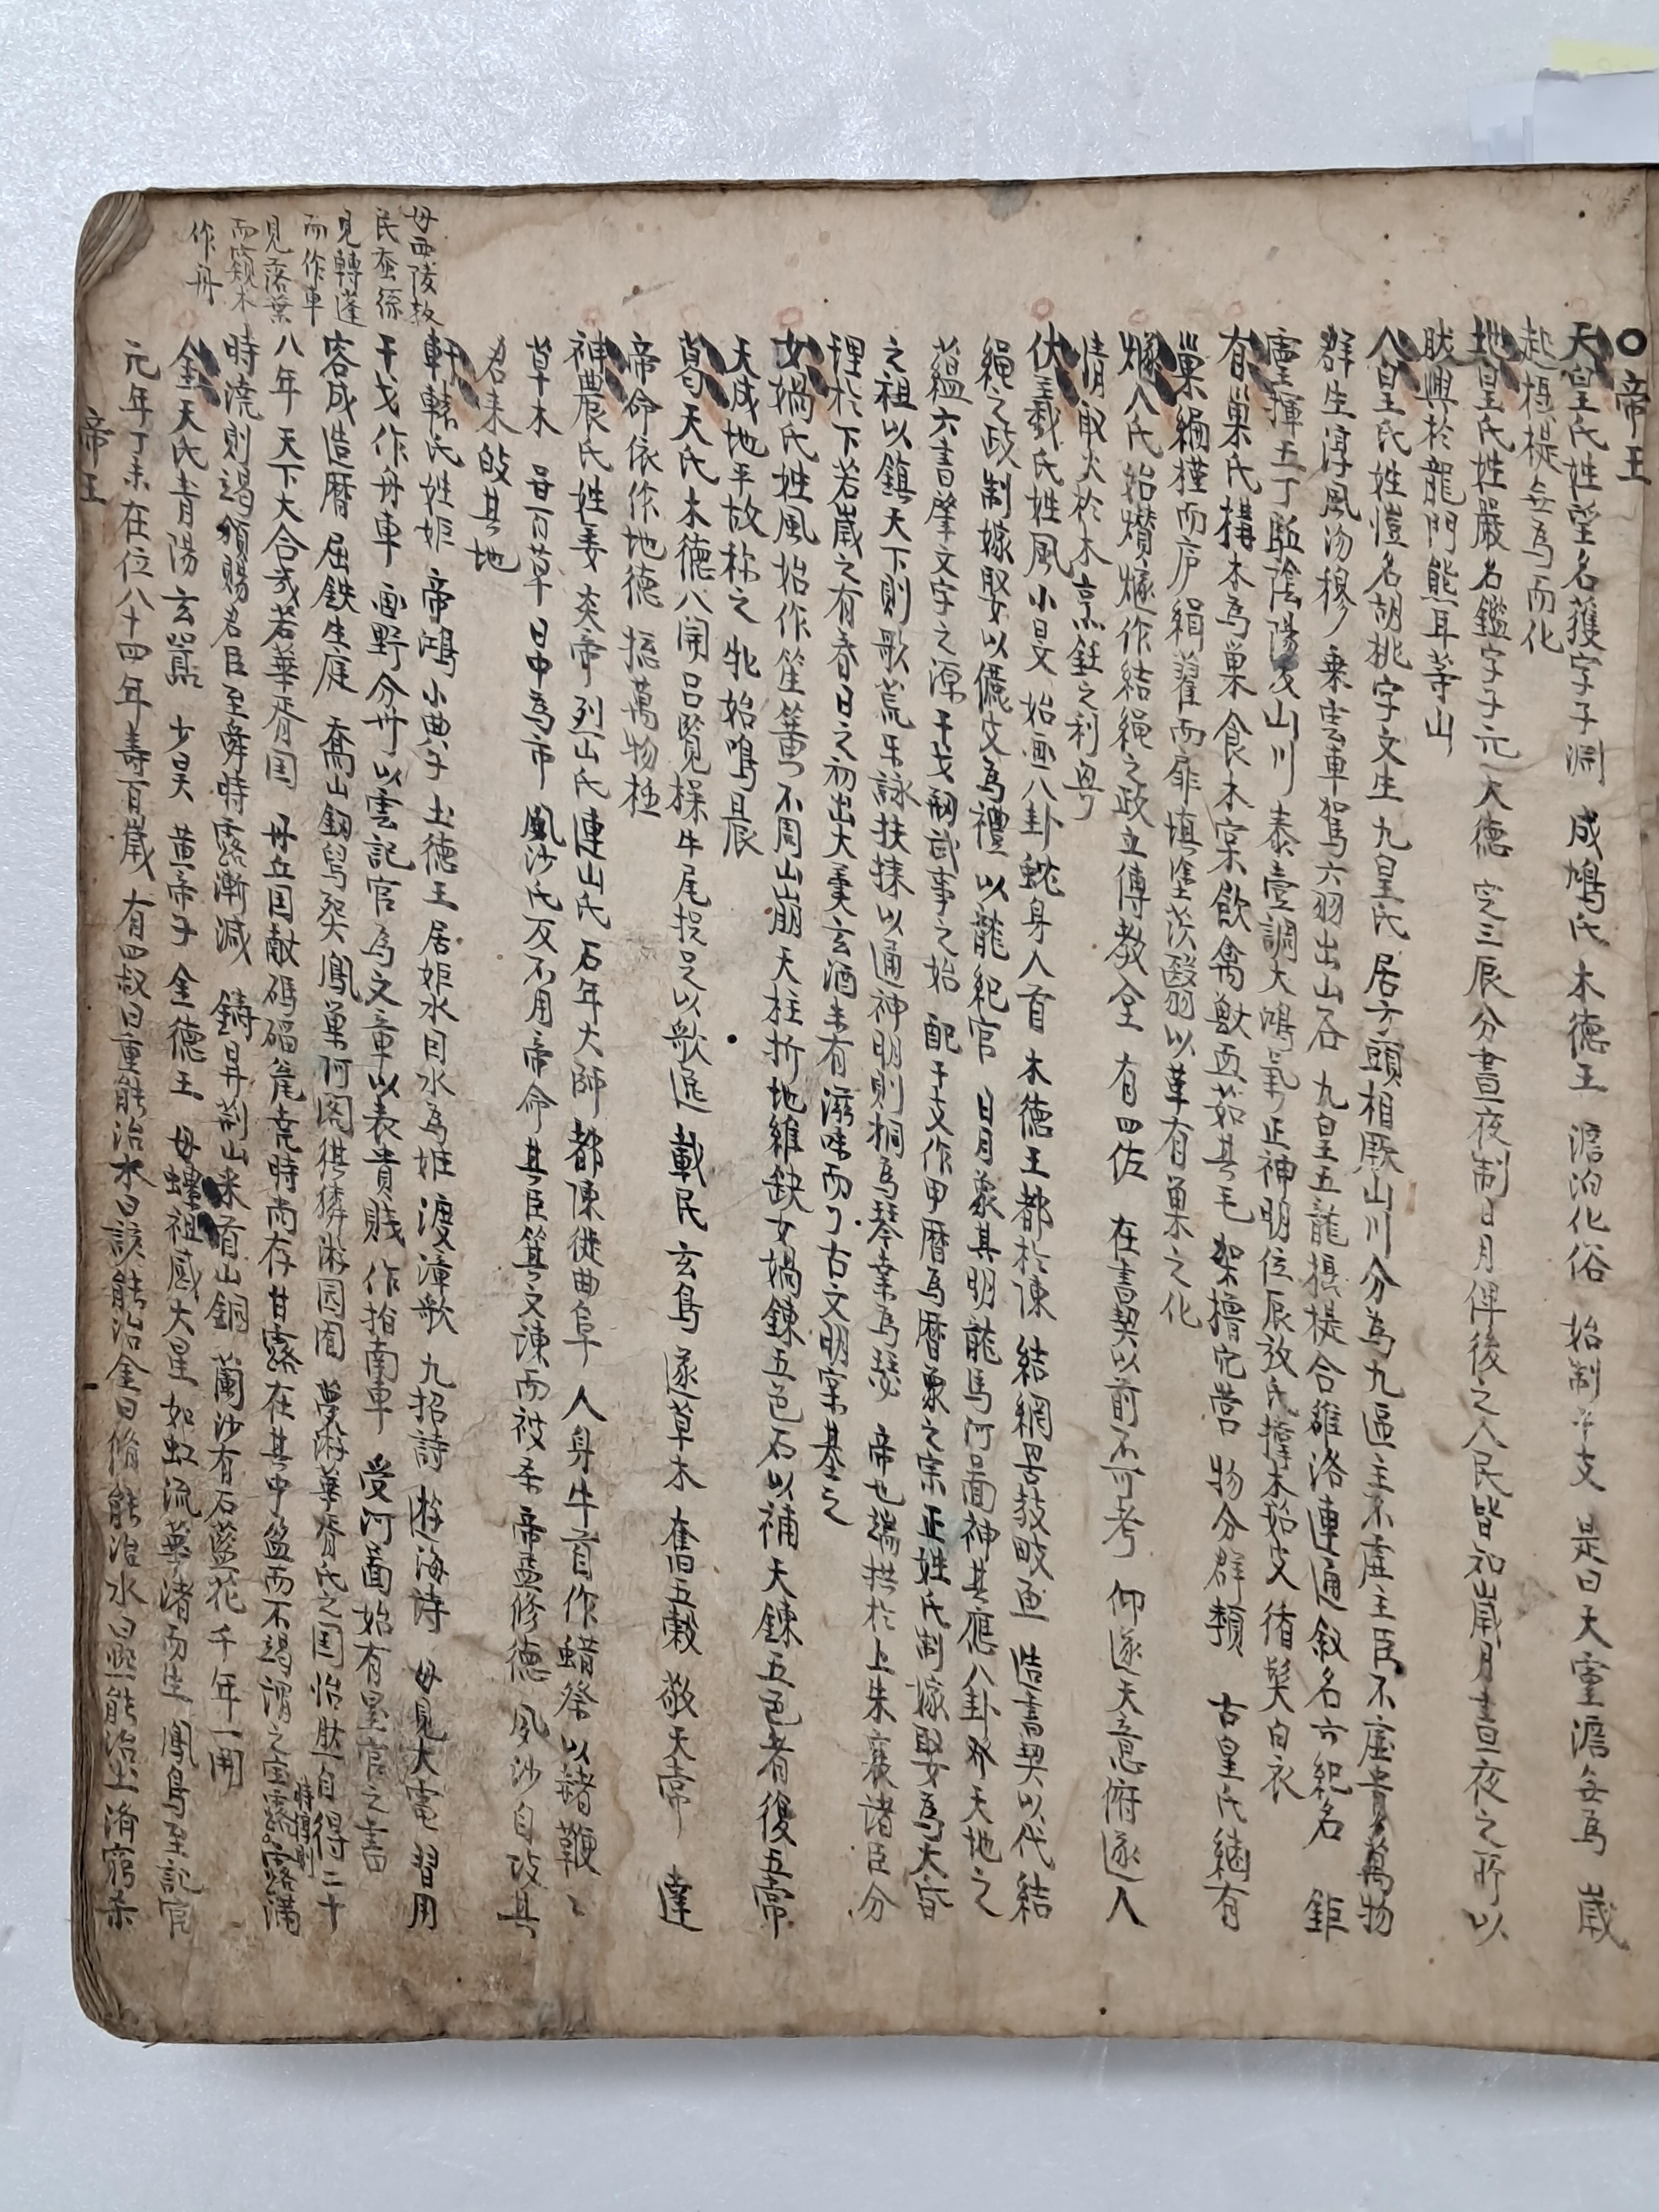 ○帝王
天皇氏姓望名獲字子潤 成鳩氏 木德王 澹泊化俗 始制干支 是曰天靈澹無爲 歲
起攝提無爲而化
地皇氏姓嚴名鑑字子元 火德 定三辰分晝夜制日月俾後之人民皆知歲月晝夜之所以
肰興於龍門熊耳等山
人皇氏姓愷名胡挑字文生 九皇氏 居方頭相厥山川分爲九區主不虛主臣不虛貴萬物
群生淳風沕穆 乗雲車駕六羽出山谷 九皇五龍攝提合雒洛連通叙名六紀名 鉅
靈揮五丁 陰陽反山川 泰壹調大鴻氣正神明位 辰放氏 木 皮 髮白衣
有巢氏構木爲巢 食木宲飲禽獸血茹其毛 架橧穴營 物分群類 古皇氏 有
巢 槿而庐緝藋而扉塡塗茨翳以革有巢之化
燧人氏始鑽燧作結繩之政立傳敎仝 有四佐 在書契以前不可考 仰遂天意俯遂人
情取火於木烹飪之利粤
伏羲氏姓風小昊 始画八卦蛇身人首 木德王都於陳 結網罟敎畋𩵋 造書契以代結
繩之政制嫁娶以儷皮爲禮 以龍紀官 日月象其明龍馬河啚神其應八卦 天地之
蘊六書肇文字之源干戈 武事之始 配干支作甲曆爲曆象之宗正姓氏制嫁娶爲大昏
之祖以鎭天下則歌荒樂詠扶徠以通神明則桐爲琴桒爲瑟 帝也端拱於上朱襄諸臣分
理於下若歲之有春日之初出大羹玄酒未有滋味而 古文明宲基之
女媧氏姓風始作笙簧 不周山崩天柱折地維缺女媧鍊五色石以補天鍊五色者復五常
天成地平故称之 牝始鳴旦辰
葛天氏木德八闋呂覧操牛尾投足以歌進 載民 玄鳥 遂草木 奮五糓 敬天常 達
帝命依作地德 揔萬物極
神農氏姓姜 炎帝 列山氏 連山氏 石年大師 都陳徙曲阜 人身牛首作蜡祭以赭鞭鞭
草木 甞百草 日中爲市 風沙氏反不用帝命 其臣箕文諫而被杀 帝益修德 風沙自攻其
君来 其地
軒轅氏姓姬 帝鴻 小典子 土德王居姬水因水爲姓 渡漳歌 九招詩 遊海詩 母見大電 習用
干戈作舟車 画野分州 以雲記官爲文章以表貴賎 作指南車 受河啚始有星官之書
容成造曆 屈鉄生庭 喬山釼舃葬 鳳巢阿閣猉獜游囿 夢游華胥氏之国怡肰自得二十
八年 天下大合或若華胥国 丹丘国献碼碯瓮尭時尚存甘露在其中盈而不竭謂之宝露露滿
時澆則竭頒賜君臣至舜時露漸减 鑄昇荊山采首山銅 蘭沙有石藍花千年一開
時
金天氏靑陽 玄囂 少昊 黄帝子 金德王 母螺祖感大星如虹流華渚而生 鳳鳥至記官
元年丁未在位八十四年壽百歲 有四叔曰重能治木曰該能治金曰脩能治水曰熙能治土済窮桒
帝王
母西陵敎
民蚕絲
見轉蓬
而作車
見落葉
而 木
作舟